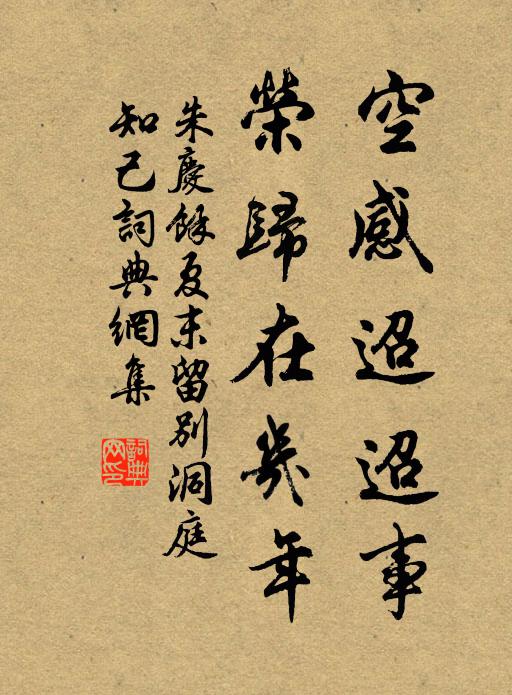 空感迢迢事
榮歸在幾年
朱慶餘夏末留別洞庭
知己詞典網集
詞典
网印